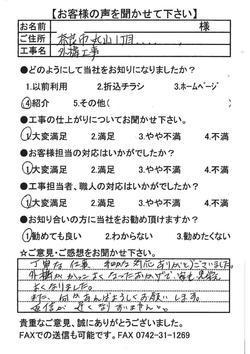 【お客様の声を聞かせて下さい】
お名前 様
ご住所 奈良市 山1丁目
工事名 外構工事
●どのようにして当社をお知りになりましたか?
1.以前利用 2.折込チラシ 3.ホームページ
④紹介 5.その他( )
●工事の仕上がりについてお聞かせ下さい。
①大変満足 2.満足 3.やや不満 4.不満
●お客様担当の対応はいかがでしたか?
①大変満足 2.満足 3.やや不満 4.不満
●工事担当者、職人の対応はいかがでしたか?
①大変満足 2.満足 3.やや不満 4.不満
●お知り合いの方に当社をお勧め頂けますか?
①勧めても良い 2.わからない 3.勧めたくない
☆ご意見・ご感想をお聞かせ下さい。
丁寧な仕事、 対応ありがとうございました。
外構がかっこよくなったおかげで、家も
よくなりました。
また、何かあればよろしくお願いします。
返信が遅くなりすみません。
貴重なご意見、誠にありがとうございました。
FAXでの送信も可能です。FAX 0742-31-1269